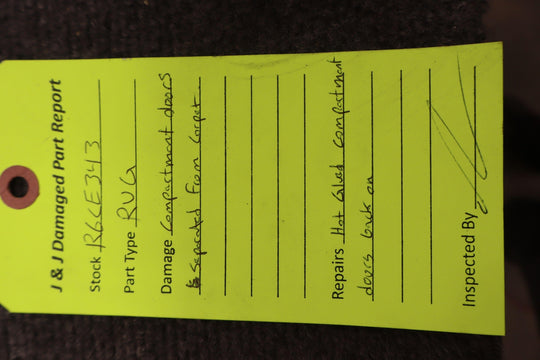 J & J Damaged Part Report
Stock R6CE343
Part Type RUG
Damage Compartment doors
Separated From Carpet
Repairs Hot Glued compartment
doors back on
Inspected By